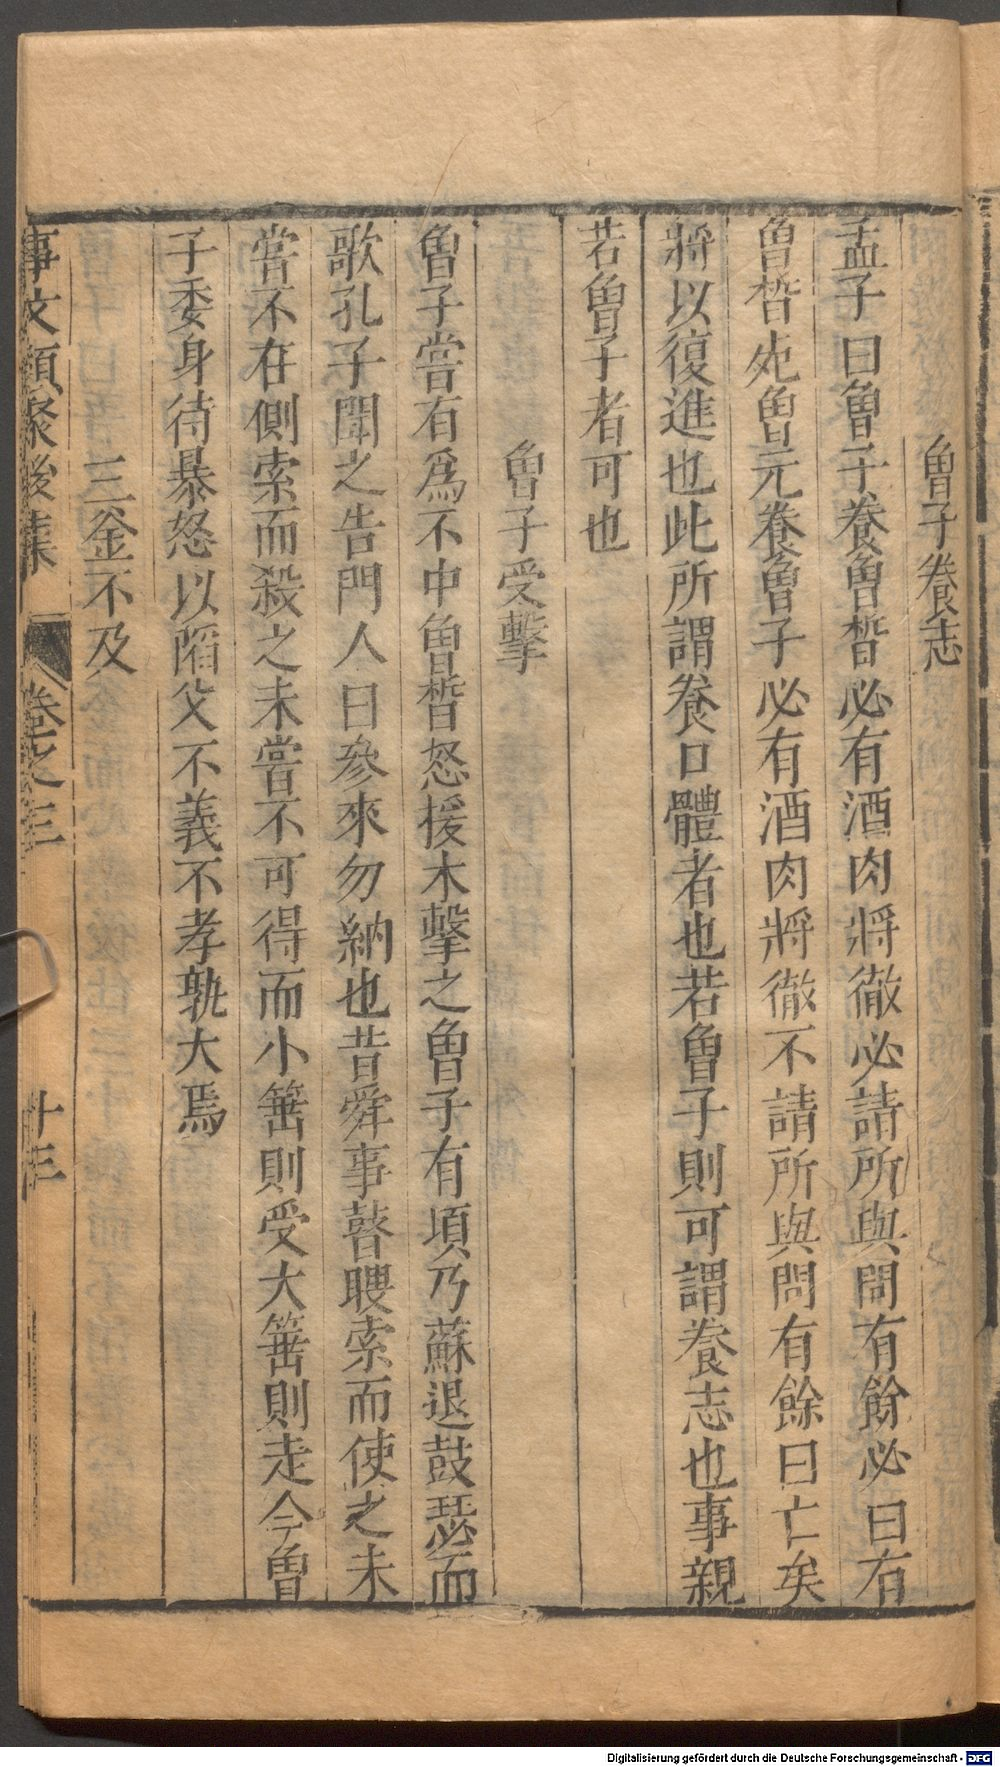 曾子養志
孟子曰曾子養曾晳必有酒肉將徹必請所與問有餘必曰有
曾晳死曾元養曾子必有酒肉將徹不請所與問有餘曰亡矣
將以復進也此所謂養口體者也若曾子則可謂養志也事親
若曾子者可也
曾子受擊
曾子嘗有爲不中曾晳怒援木擊之曾子有頃乃蘇退鼓瑟而
歌孔子聞之告門人曰參來勿納也昔舜事瞽瞍索而使之未
嘗不在側索而殺之未嘗不可得而小箠則受大箠則走今曾
子委身待暴怒以陷父不義不孝孰大焉
三釜不及
事文類聚後集 卷之三 廿三
Digitalisierung gefördert durch die Deutsche Forschungsgemeinschaft - DFG